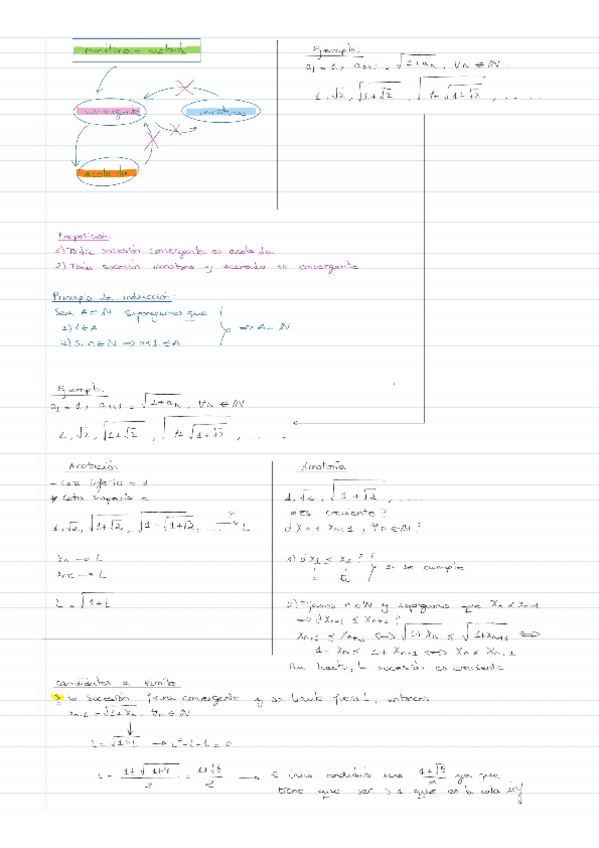 monótona + acotada
convergente
monótona
acotada
Ejemplo:
a₁ = 1, aₙ₊₁ = √(1+aₙ), ∀n ∈ ℕ
1, √2, √(1+√2), √(1+√(1+√2)), ......
Proposición:
1) Toda sucesión convergente es acotada
2) Toda sucesión monótona y acotada es convergente
Principio de inducción:
Sea A ⊂ ℕ supongamos que
1) 1 ∈ A
2) Si n ∈ ℕ ⟹ n+1 ∈ A
⟹ A = ℕ
Ejemplo:
a₁ = 1, aₙ₊₁ = √(1+aₙ), ∀n ∈ ℕ
1, √2, √(1+√2), √(1+√(1+√2)), ......
Acotación
- cota inferior = 1
cota superior =
1, √2, √(1+√2), √(1+√(1+√2)), ... → L
xₙ → L
xₙ₊₁ → L
L = √(1+L)
Monotonía
1, √2, √(1+√2), ......
¿es creciente?
¿xₙ ≤ xₙ₊₁, ∀n ∈ ℕ?
1) ¿x₁ ≤ x₂? sí se cumple
1 √2
2) Fijamos n ∈ ℕ y supongamos que xₙ ≤ xₙ₊₁
⟹ ¿xₙ₊₁ ≤ xₙ₊₂?
xₙ₊₁ ≤ xₙ₊₂ ⟺ √(1+xₙ) ≤ √(1+xₙ₊₁) ⟺
1+xₙ ≤ 1+xₙ₊₁ ⟺ xₙ ≤ xₙ₊₁
Por tanto, la sucesión es creciente
Candidatos a límite
Si la sucesión fuera convergente y su límite fuese L, entonces
xₙ₊₁ = √(1+xₙ), ∀n ∈ ℕ
L = √(1+L) → L² - L - 1 = 0
L = (1±√(1+4))/2 = (1±√5)/2 → el único candidato será (1+√5)/2 ya que
tiene que ser ≥ 1 que es la cota inf